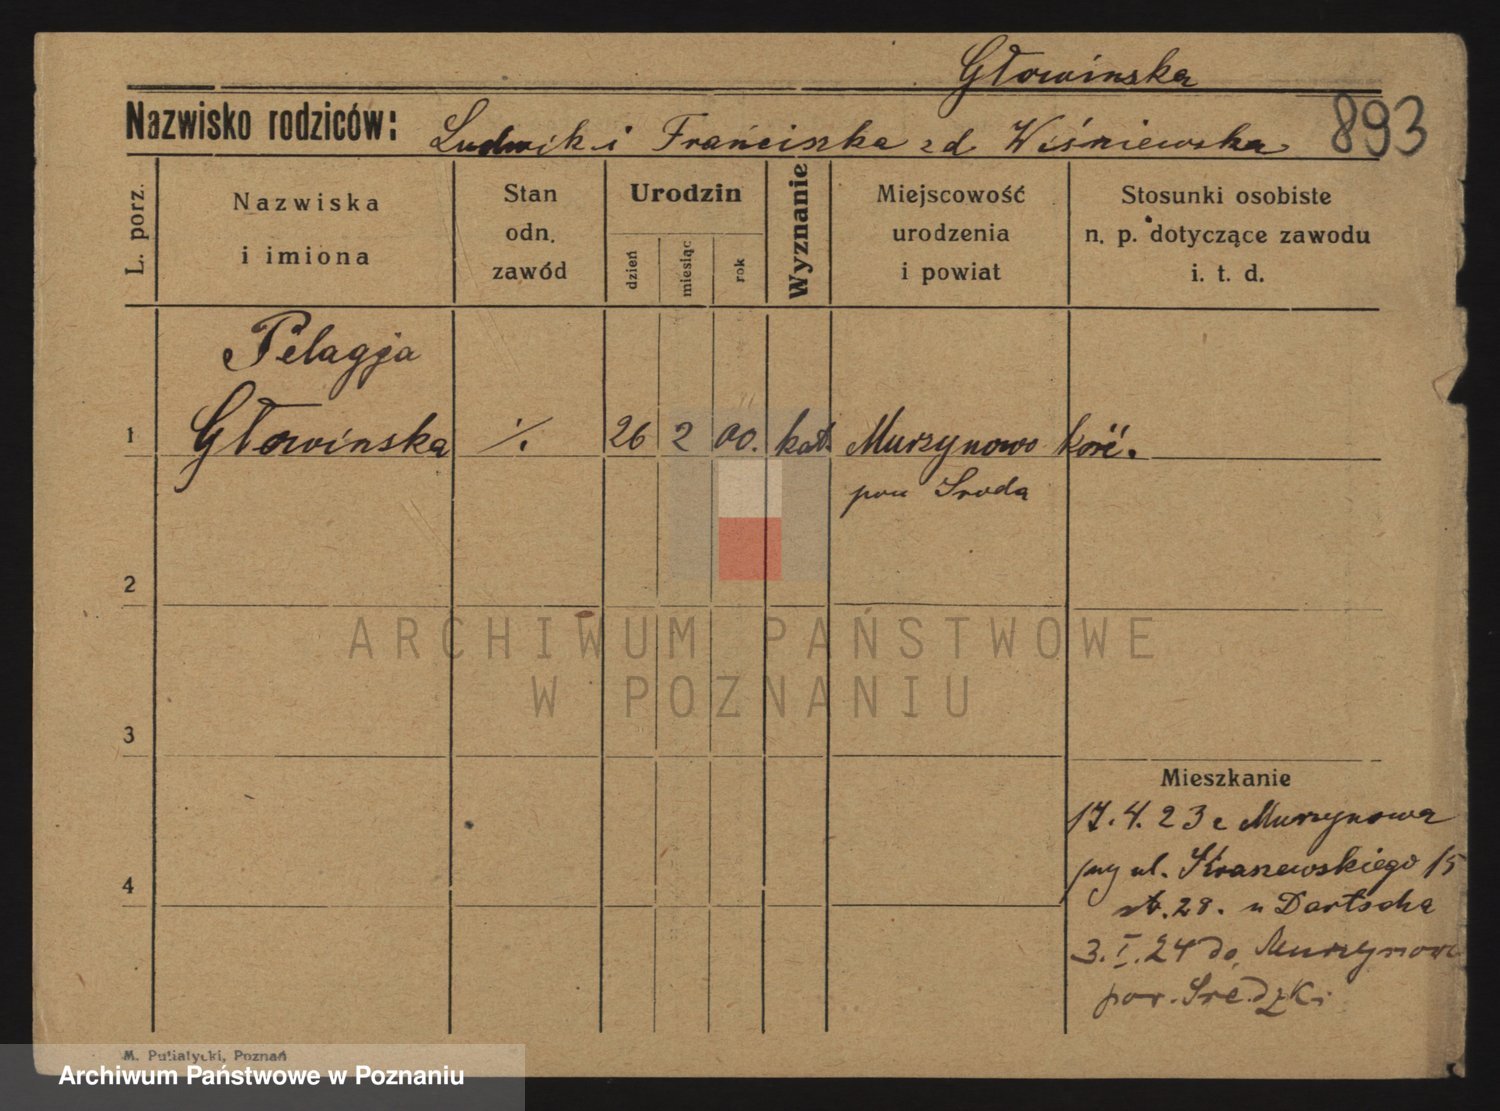 Głowinska
893
Nazwisko rodziców: Ludwik i Franciszka zd Wiśniewska
L. porz.
Nazwiska
i imiona
Stan
odn.
zawód
Urodzin
dzień
miesiąc
rok
Wyznanie
Miejscowość
urodzenia
i powiat
Stosunki osobiste
n. p. dotyczące zawodu
i. t. d.
Pelagja
1 Głowinska ./. 26 2 00. kat. Murzynowo kość.
pow Sroda
2
ARCHIWUM PAŃSTWOWE
W POZNANIU
3
Mieszkanie
17.4.23 z Murzynowa
przy ul. Kraszewskiego 15
4
28. u Dartscha
3.I.24 do Murzynowa
pow. Sredzki
M. Putiatycki, Poznań
Archiwum Państwowe w Poznaniu